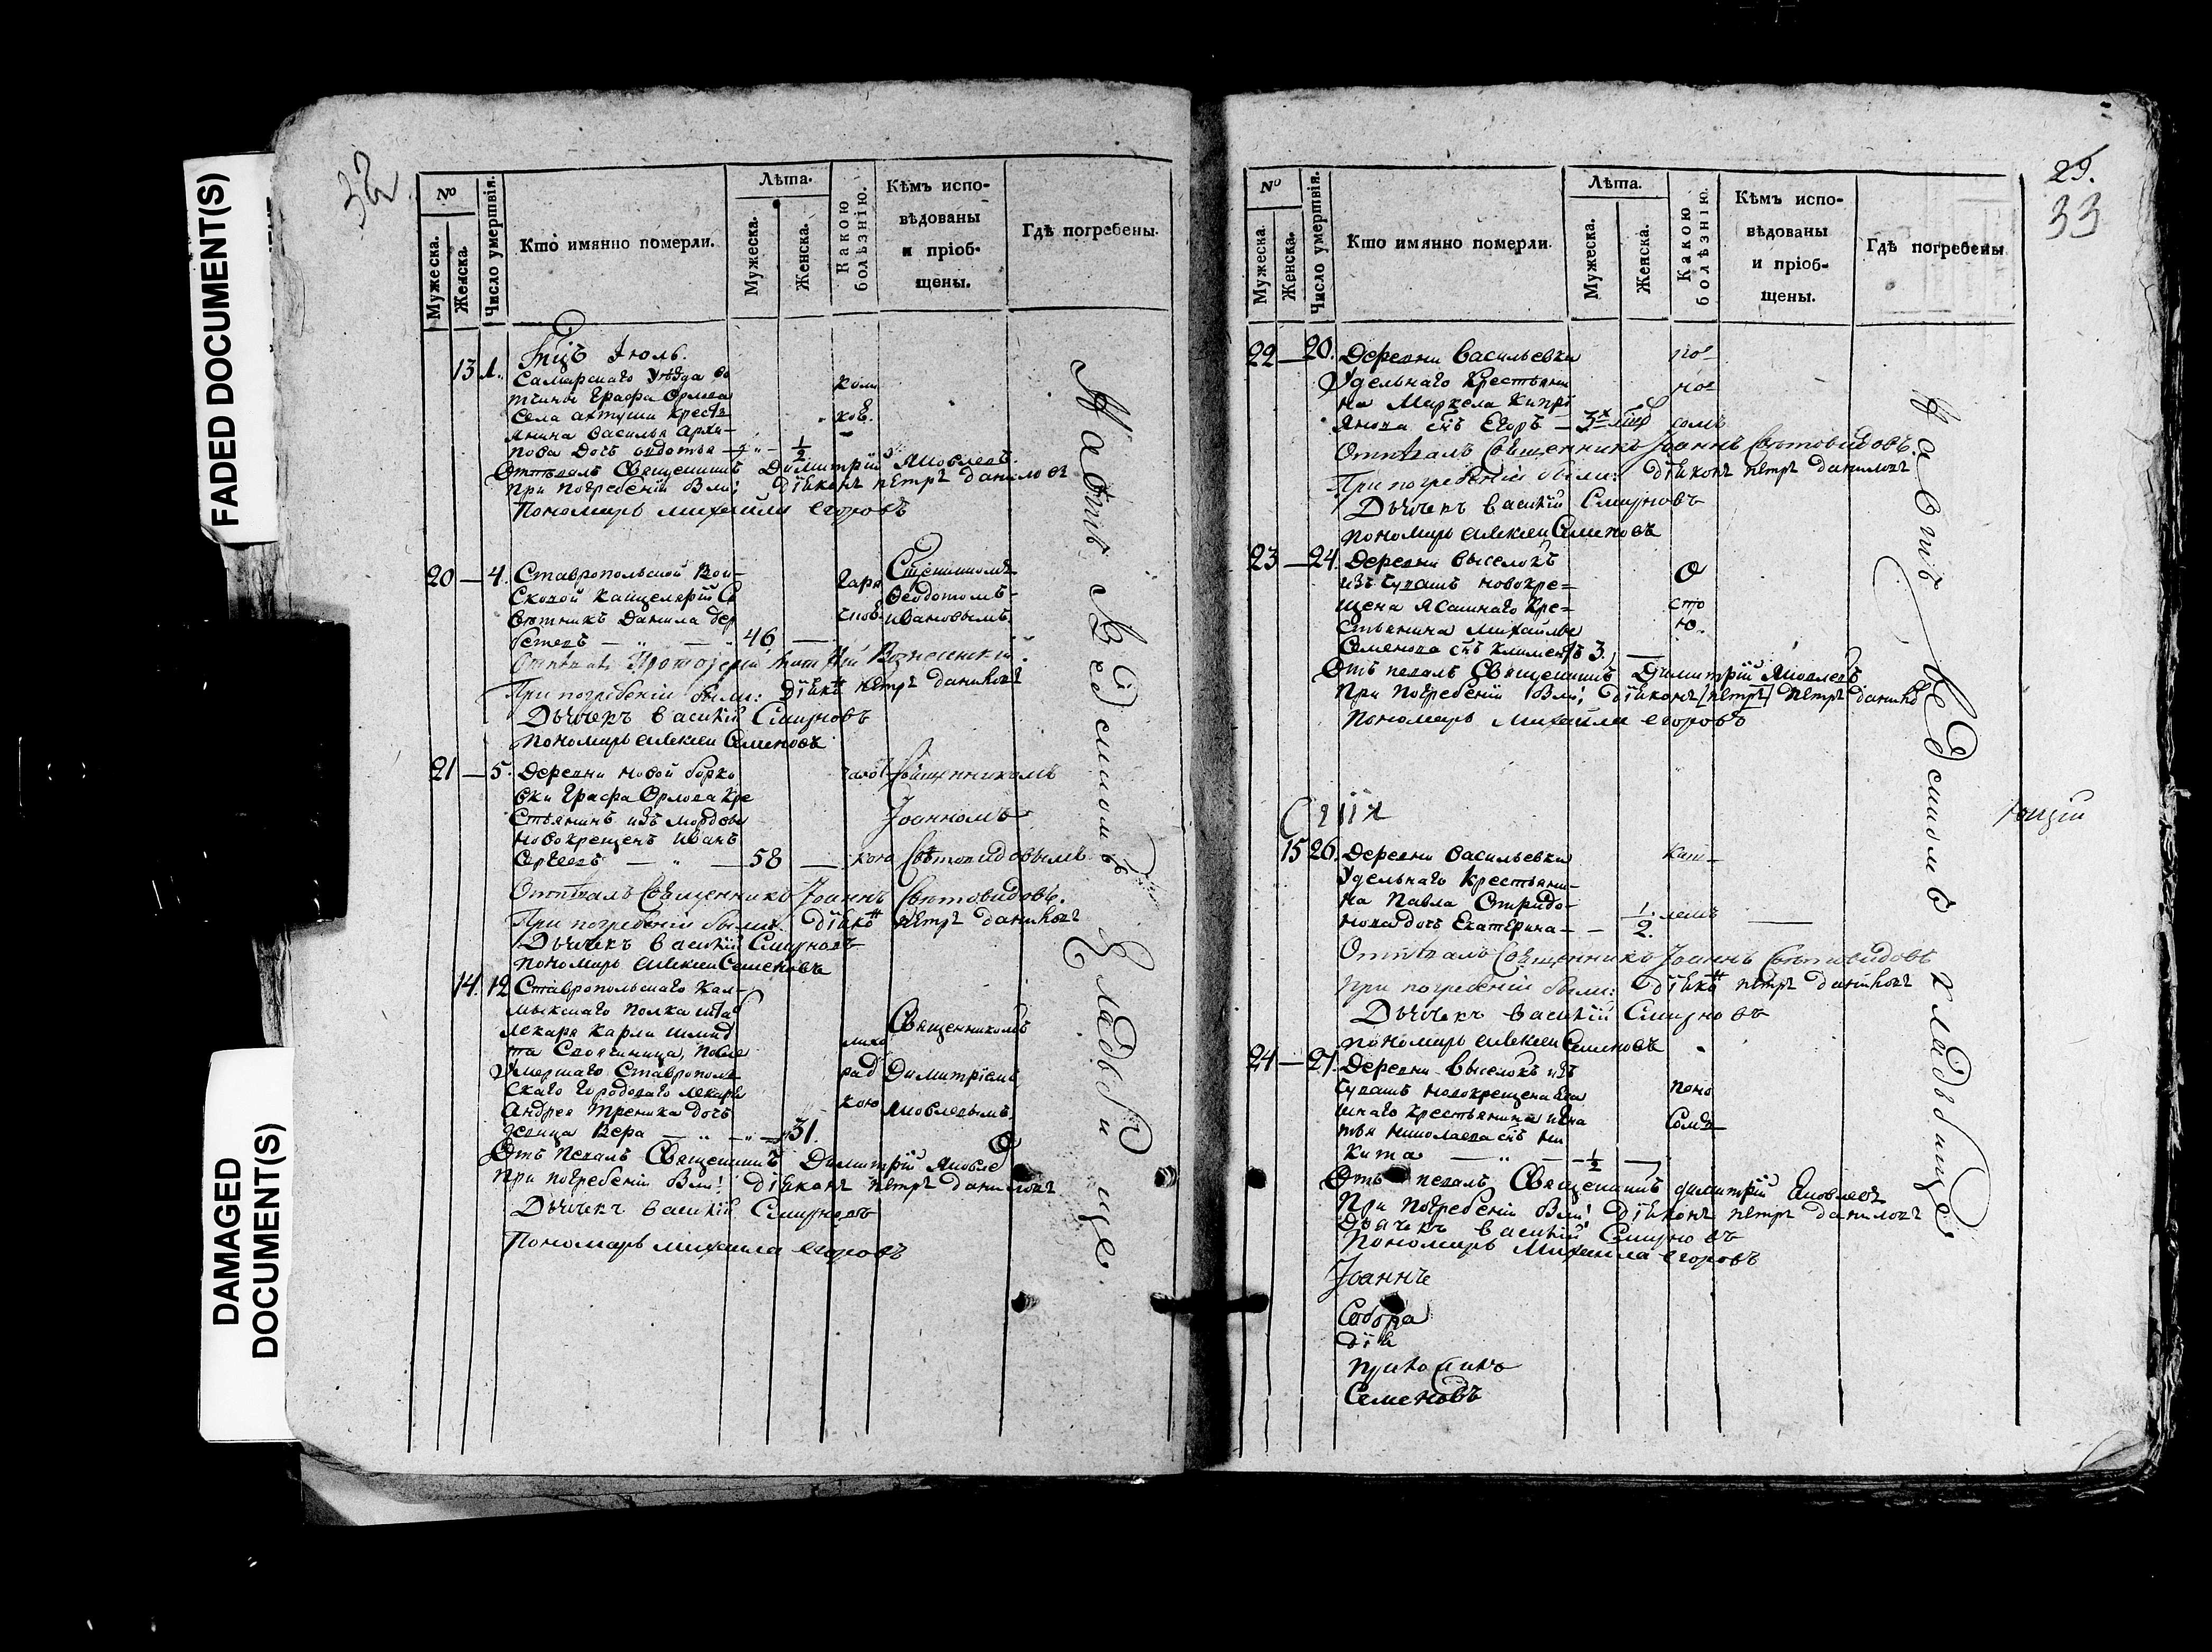 FADED DOCUMENT(S)
DAMAGED DOCUMENT(S)
32
№
Мужеска.
Женска.
Число умертвія.
Кто имянно померли.
Лѣта.
Мужеска.
Женска.
Какою болѣзнію.
Кѣмъ испо-
вѣдованы
и пріоб-
щены.
Гдѣ погребены.
Іюль.
13 1.
Самарскаго Уѣзда во
тчины Графа Орлова
Села ахтуши крестъ
янина Василья архи-
пова дочь авдотья 1/2
Отпѣвалъ Священникъ Димитрій Яковлевъ.
при погребеніи были: діаконъ петръ даниловъ
Пономарь михаила егоровъ
20 — 4. Ставропольской Вои-
сковой канцеляріи Со
вѣтникъ Данила дер
бетевъ — 46 —
горя
Сщенникомъ
Ѳеодотомъ
ивановымъ
Отпѣвалъ Протоіерей Вознесенскій.
При погребеніи были: діакнъ петръ даниловъ
Дьячекъ василій Смирновъ
пономарь алексеи Семеновъ
21 — 5. Деревни новой борко
вки Графа Орлова кре
стьянинъ изъ мордвы
новокрещенъ иванъ
Сергеевъ — 58 —
кою
Священникомъ
Іоанномъ
Свѣтовидовымъ
Отпѣвалъ Священникъ Іоаннъ Свѣтовидовъ.
При погребеніи были: діаконъ петръ даниловъ
Дьячекъ василій Смирновъ
пономарь алексеи Семеновъ
14. 12 Ставропольскаго Кал-
мыкскаго полка штаб
лекаря карла шмид
та Своячиница, после
Умершаго Ставрополь
скаго городоваго лекаря
Андрея треника дочь
девица Вера — 31.
лихо
рад
кою
Священникомъ
Димитріемъ
Яковлевымъ.
Отъ певалъ Священникъ Димитрій Яковлев
при погребеніи были: діаконъ петръ даниловъ
Дьячекъ василій Смирновъ
Пономарь михаила егоровъ
На отъ Ведѣнномъ Кладбище.
29.
33
№
Мужеска.
Женска.
Число умертвія.
Кто имянно померли.
Лѣта.
Мужеска.
Женска.
Какою болѣзнію.
Кѣмъ испо-
вѣдованы
и пріоб-
щены.
Гдѣ погребены
22 — 20. Деревни васильевки
Удельнаго Крестьяни
на Маркела Кипрі
янова сиъ Егоръ — 3х лѣтъ
по-
но-
сомъ
Отпѣвалъ Священникъ Іоаннъ Свѣтовидовъ.
При погребеніи были: діаконъ петръ даниловъ
Дьячекъ василій Смирновъ
пономарь алексеи Семеновъ
23 — 24. Деревни выселокъ
изъ Чувашъ новокре-
щена ясашнаго кре-
стьянина михайлы
Семенова сиъ климентъ 3, —
О
спо
ю.
Отъ певалъ Священникъ Димитрій Яковлевъ
при погребеніи были: діаконъ [петръ] петръ данило
Пономарь михаила егоровъ
15 26. Деревни васильевки
Удельнаго Крестьяни-
на Павла Спиридо-
нова дочь Екатерина — 1/2.
каш-
лемъ
Отпѣвалъ Священникъ Іоаннъ Свѣтовидовъ
при погребеніи были: діаконъ петръ даниловъ
Дьячекъ василій Смирновъ
пономарь алексеи Семеновъ
24 — 27. Деревни Выселокъ изъ
Чувашъ новокрещена яса
шнаго крестьянина игна
тья николаева сиъ ни
кита — 1/2 —
поно
сомъ
Отъ певалъ Священникъ димитрій Яковлевъ
При погребеніи были: діаконъ петръ даниловъ
Дьячекъ василій Смирновъ
Пономарь Михаила егоровъ
На отъ ведѣнномъ кладбище.
Іоаннъ
Собора
дїа
Семеновъ